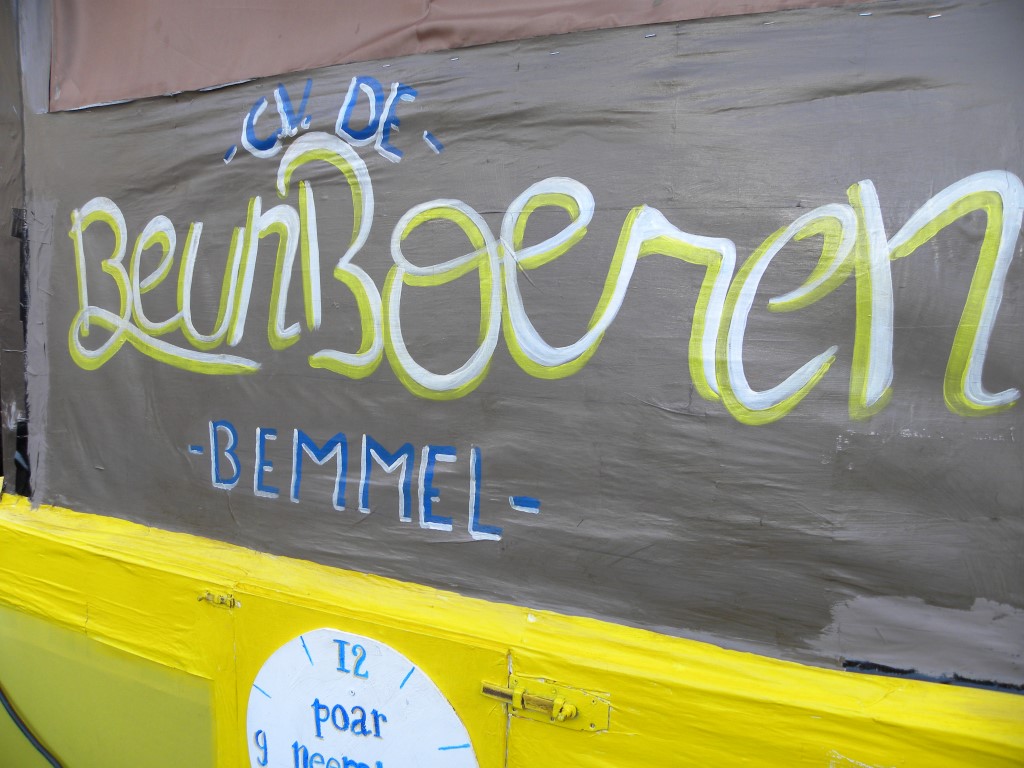 - C.V. DE -
BeunBoeren
- BEMMEL -
12
poar
9